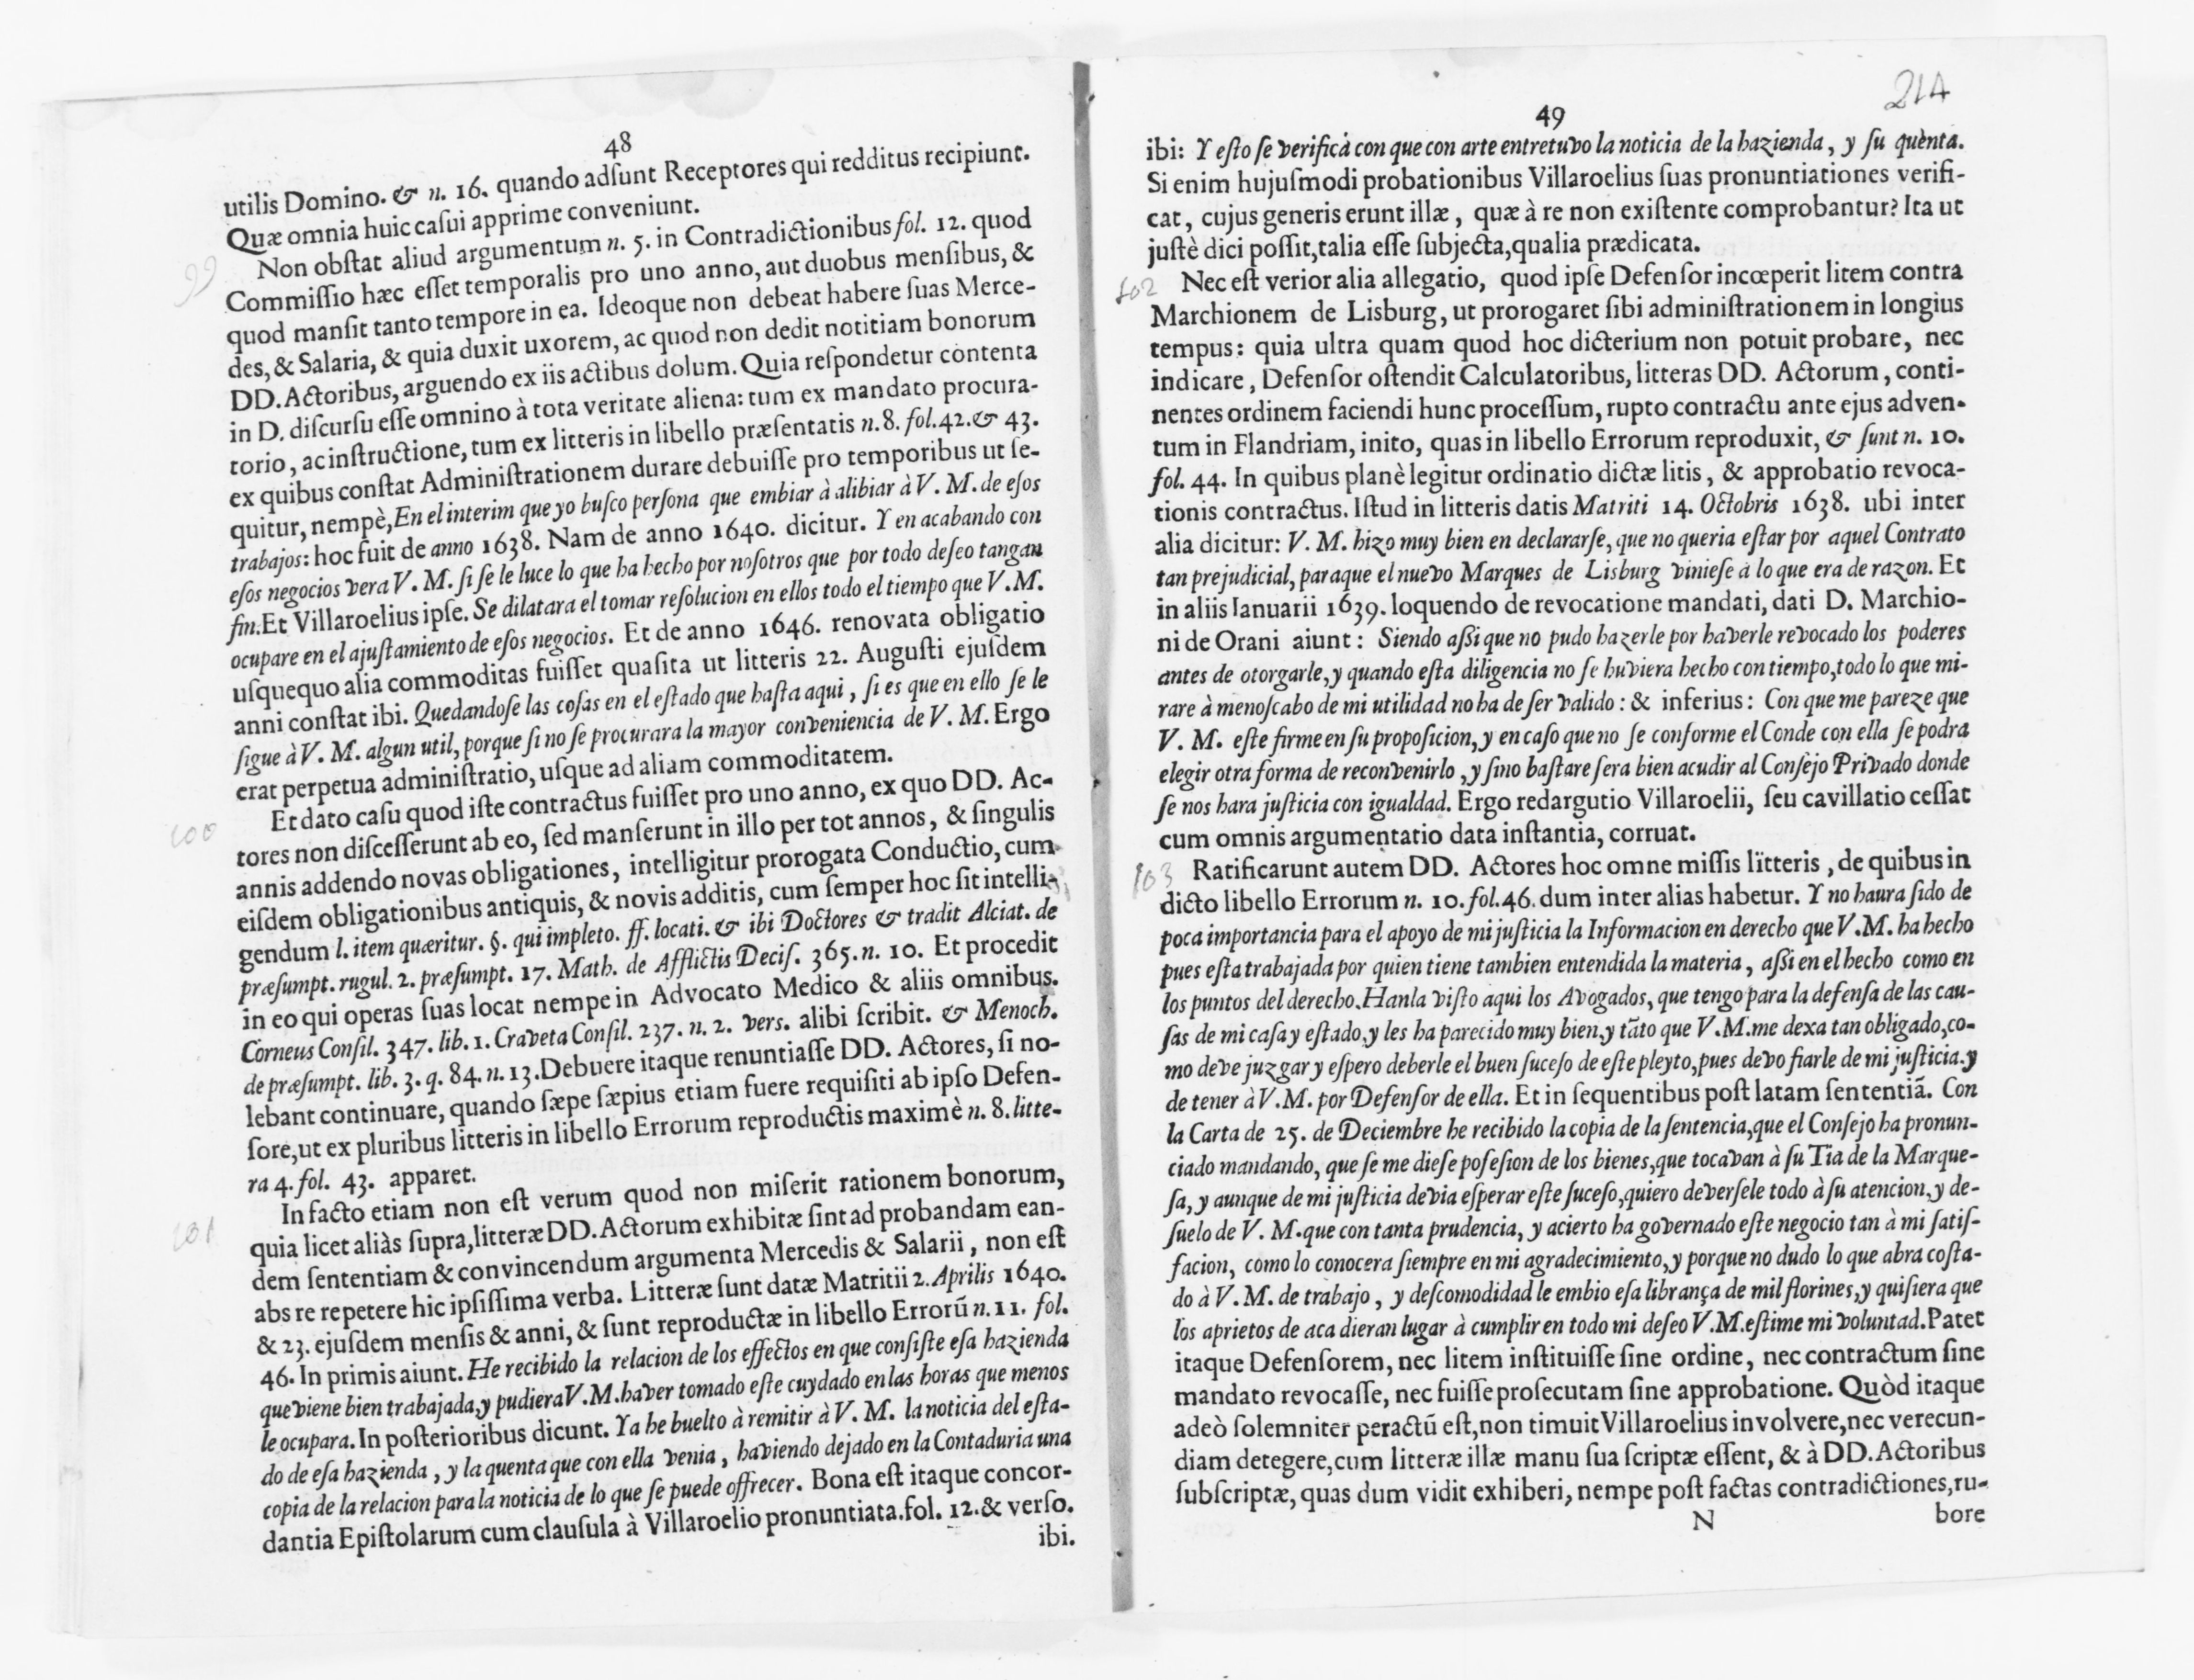 48
utilis Domino. & n. 16. quando adſunt Receptores qui redditus recipiunt.
Quæ omnia huic caſui apprime conveniunt.
99
Non obſtat aliud argumentum n. 5. in Contradictionibus fol. 12. quod
Commiſſio hæc eſſet temporalis pro uno anno, aut duobus menſibus, &
quod manſit tanto tempore in ea. Ideoque non debeat habere ſuas Merce-
des, & Salaria, & quia duxit uxorem, ac quod non dedit notitiam bonorum
DD. Actoribus, arguendo ex iis actibus dolum. Quia reſpondetur contenta
in D. diſcurſu eſſe omnino à tota veritate aliena: tum ex mandato procura-
torio, ac inſtructione, tum ex litteris in libello præſentatis n. 8. fol. 42. & 43.
ex quibus conſtat Adminiſtrationem durare debuiſſe pro temporibus ut ſe-
quitur, nempè, En el interim que yo buſco perſona que embiar à alibiar à V. M. de eſos
trabajos: hoc fuit de anno 1638. Nam de anno 1640. dicitur. Y en acabando con
eſos negocios vera V. M. ſi ſe le luce lo que ha hecho por noſotros que por todo deſeo tangan
fin. Et Villaroelius ipſe. Se dilatara el tomar reſolucion en ellos todo el tiempo que V. M.
ocupare en el ajuſtamiento de eſos negocios. Et de anno 1646. renovata obligatio
uſquequo alia commoditas fuiſſet quaſita ut litteris 22. Auguſti ejuſdem
anni conſtat ibi. Quedandoſe las coſas en el eſtado que haſta aqui, ſi es que en ello ſe le
ſigue à V. M. algun util, porque ſi no ſe procurara la mayor conveniencia de V. M. Ergo
erat perpetua adminiſtratio, uſque ad aliam commoditatem.
100
Et dato caſu quod iſte contractus fuiſſet pro uno anno, ex quo DD. Ac-
tores non diſceſſerunt ab eo, ſed manſerunt in illo per tot annos, & ſingulis
annis addendo novas obligationes, intelligitur prorogata Conductio, cum
eiſdem obligationibus antiquis, & novis additis, cum ſemper hoc ſit intelli-
gendum l. item quæritur. §. qui impleto. ff. locati. & ibi Doctores & tradit Alciat. de
præſumpt. rugul. 2. præſumpt. 17. Math. de Afflictis Deciſ. 365. n. 10. Et procedit
in eo qui operas ſuas locat nempe in Advocato Medico & aliis omnibus.
Corneus Conſil. 347. lib. 1. Craveta Conſil. 237. n. 2. verſ. alibi ſcribit. & Menoch.
de præſumpt. lib. 3. q. 84. n. 13. Debuere itaque renuntiaſſe DD. Actores, ſi no-
lebant continuare, quando ſæpe ſæpius etiam fuere requiſiti ab ipſo Defen-
ſore, ut ex pluribus litteris in libello Errorum reproductis maximè n. 8. litte-
ra 4. fol. 43. apparet.
101
In facto etiam non eſt verum quod non miſerit rationem bonorum,
quia licet aliàs ſupra, litteræ DD. Actorum exhibitæ ſint ad probandam ean-
dem ſententiam & convincendum argumenta Mercedis & Salarii, non eſt
abs re repetere hic ipſiſſima verba. Litteræ ſunt datæ Matritii 2. Aprilis 1640.
& 23. ejuſdem menſis & anni, & ſunt reproductæ in libello Errorū n. 11. fol.
46. In primis aiunt. He recibido la relacion de los effectos en que conſiſte eſa hazienda
que viene bien trabajada, y pudiera V. M. haver tomado eſte cuydado en las horas que menos
le ocupara. In poſterioribus dicunt. Ya he buelto à remitir à V. M. la noticia del eſta-
do de eſa hazienda, y la quenta que con ella venia, haviendo dejado en la Contaduria una
copia de la relacion para la noticia de lo que ſe puede offrecer. Bona eſt itaque concor-
dantia Epiſtolarum cum clauſula à Villaroelio pronuntiata. fol. 12. & verſo.
ibi.
214
49
ibi: Y eſto ſe verificà con que con arte entretuvo la noticia de la hazienda, y ſu quènta.
Si enim hujuſmodi probationibus Villaroelius ſuas pronuntiationes verifi-
cat, cujus generis erunt illæ, quæ à re non exiſtente comprobantur? Ita ut
juſtè dici poſſit, talia eſſe ſubjecta, qualia prædicata.
102
Nec eſt verior alia allegatio, quod ipſe Defenſor incœperit litem contra
Marchionem de Lisburg, ut prorogaret ſibi adminiſtrationem in longius
tempus: quia ultra quam quod hoc dicterium non potuit probare, nec
indicare, Defenſor oſtendit Calculatoribus, litteras DD. Actorum, conti-
nentes ordinem faciendi hunc proceſſum, rupto contractu ante ejus adven-
tum in Flandriam, inito, quas in libello Errorum reproduxit, & ſunt n. 10.
fol. 44. In quibus planè legitur ordinatio dictæ litis, & approbatio revoca-
tionis contractus. Iſtud in litteris datis Matriti 14. Octobris 1638. ubi inter
alia dicitur: V. M. hizo muy bien en declararſe, que no queria eſtar por aquel Contrato
tan prejudicial, paraque el nuevo Marques de Lisburg vinieſe à lo que era de razon. Et
in aliis Ianuarii 1639. loquendo de revocatione mandati, dati D. Marchio-
ni de Orani aiunt: Siendo aſſi que no pudo hazerle por haverle revocado los poderes
antes de otorgarle, y quando eſta diligencia no ſe huviera hecho con tiempo, todo lo que mi-
rare à menoſcabo de mi utilidad no ha de ſer valido: & inferius: Con que me pareze que
V. M. eſte firme en ſu propoſicion, y en caſo que no ſe conforme el Conde con ella ſe podra
elegir otra forma de reconvenirlo, y ſino baſtare ſera bien acudir al Conſejo Privado donde
ſe nos hara juſticia con igualdad. Ergo redargutio Villaroelii, ſeu cavillatio ceſſat
cum omnis argumentatio data inſtantia, corruat.
103
Ratificarunt autem DD. Actores hoc omne miſſis litteris, de quibus in
dicto libello Errorum n. 10. fol. 46. dum inter alias habetur. Y no haura ſido de
poca importancia para el apoyo de mi juſticia la Informacion en derecho que V. M. ha hecho
pues eſta trabajada por quien tiene tambien entendida la materia, aſſi en el hecho como en
los puntos del derecho. Hanla viſto aqui los Avogados, que tengo para la defenſa de las cau-
ſas de mi caſa y eſtado, y les ha parecido muy bien, y tāto que V. M. me dexa tan obligado, co-
mo deve juzgar y eſpero deberle el buen ſuceſo de eſte pleyto, pues devo fiarle de mi juſticia. y
de tener à V. M. por Defenſor de ella. Et in ſequentibus poſt latam ſententiā. Con
la Carta de 25. de Deciembre he recibido la copia de la ſentencia, que el Conſejo ha pronun-
ciado mandando, que ſe me dieſe poſeſion de los bienes, que tocavan à ſu Tia de la Marque-
ſa, y aunque de mi juſticia devia eſperar eſte ſuceſo, quiero deverſele todo à ſu atencion, y de-
ſuelo de V. M. que con tanta prudencia, y acierto ha governado eſte negocio tan à mi ſatiſ-
facion, como lo conocera ſiempre en mi agradecimiento, y porque no dudo lo que abra coſta-
do à V. M. de trabajo, y deſcomodidad le embio eſa librança de mil florines, y quiſiera que
los aprietos de aca dieran lugar à cumplir en todo mi deſeo V. M. eſtime mi voluntad. Patet
itaque Defenſorem, nec litem inſtituiſſe ſine ordine, nec contractum ſine
mandato revocaſſe, nec fuiſſe proſecutam ſine approbatione. Quòd itaque
adeò ſolemniter peractū eſt, non timuit Villaroelius involvere, nec verecun-
diam detegere, cum litteræ illæ manu ſua ſcriptæ eſſent, & à DD. Actoribus
ſubſcriptæ, quas dum vidit exhiberi, nempe poſt factas contradictiones, ru-
N
bore